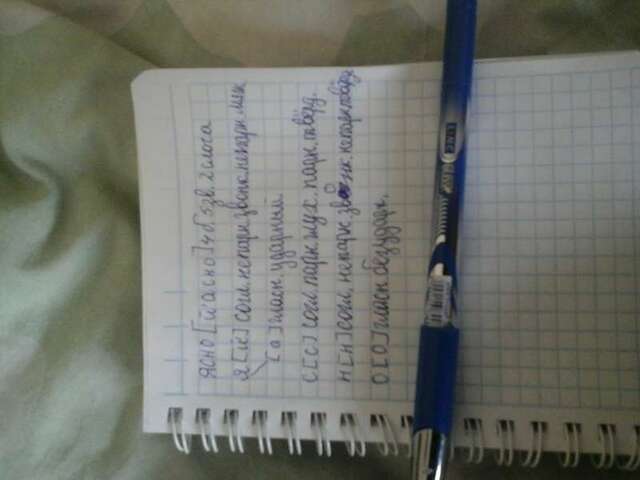 ясно [й'асно] 4 б 5 зв. 2 слога
Я [й'] согл. непарн. звонк. непарн. мяг
[а] гласн. ударный
С [с] согл. парн. глух. парн. твёрд.
Н [н] согл. непарн. звонк непарн твёрд
О [о] гласн. безударн.